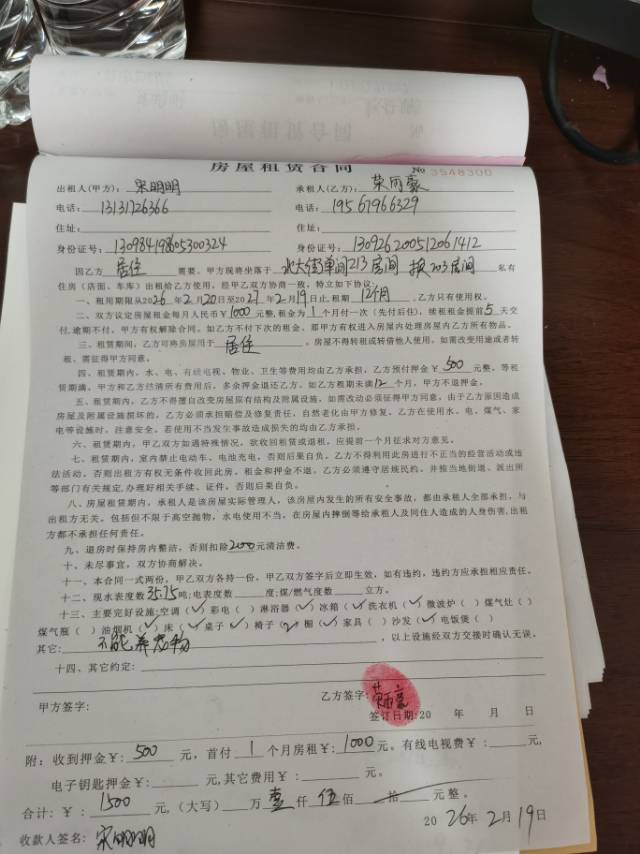 房屋租赁合同
№ 3548300
出租人(甲方)：宋明明 承租人(乙方)：荣丙豪
电话：13131726366 电话：19567966329
住址： 住址：
身份证号：130984198605300324 身份证号：130926200512061412
因乙方 居住 需要，甲方现将坐落于 北大街单间213房间 换203房间 私有
住房（店面、车库）出租给乙方使用，经甲乙双方协商一致，特立如下协议：
一、租用期限从2026年2月20日至2027年2月19日止，租期 12个月 ，乙方只有使用权。
二、双方议定房屋租金每月人民币¥1000元整，租金为1个月付一次（先付后住），续租租金提前5天交
付，逾期不付，甲方有权解除合同。如乙方不付下次的租金，那甲方有权进入房屋内处理房屋内乙方所有物品。
三、租赁期间，乙方可将房屋用于 居住 。房屋不得转租或转借他人使用，如需改变用途或者转
租，需征得甲方同意。
四、租赁期内，水、电、有线电视、物业、卫生等费用均由乙方承担，乙方预付押金¥500元整，等租
赁期满，甲方和乙方结清所有费用后，多余押金退还乙方。如乙方租期未满12个月，甲方不退押金。
五、租赁期内，乙方不得擅自改变房屋原有结构及附属设施，如需改动必须征得甲方同意，由于乙方原因造成
房屋及附属设施损坏的，乙方必须承担赔偿及修复责任，自然老化由甲方修复。乙方在使用水、电、煤气、家
电等设施时，注意安全，若使用不当发生事故造成损失的均由乙方承担。
六、租赁期内，甲乙双方如遇特殊情况，欲收回租赁或退租，应提前一个月征求对方意见。
七、租赁期内，室内禁止电动车、电池充电，否则后果自负。乙方不得利用此房进行不正当的经营活动或违
法活动，否则出租方有权无条件收回此房，租金和押金不退。乙方必须遵守居规民约，并按当地街道、派出所
等部门有关规定，办理好相关手续、证件，否则后果自负。
八、房屋租赁期内，承租人是该房屋实际管理人，该房屋内发生的所有安全事故，都由承租人全部承担，与
出租方无关。包括但不限于高空抛物，水电使用不当，在房屋内摔倒等给承租人及同住人造成的人身伤害，出租
方都不承担任何责任。
九、退房时保持房内整洁，否则扣除200元清洁费。
十、未尽事宜，双方协商解决。
十一、本合同一式两份，甲乙双方各持一份，甲乙双方签字后立即生效，如有违约，违约方应承担相应责任。
十二、现水表度数35.75吨；电表度数 度；煤/燃气度数 立方。
十三、主要完好设施：空调（✓）彩电（ ）淋浴器（✓）冰箱（✓）洗衣机（✓）微波炉（ ）煤气灶（ ）
煤气瓶（ ）油烟机（✓）床（✓）桌子（✓）椅子（✓）橱（✓）家具（ ）沙发（✓）电饭煲（ ）
其它： 不能养宠物 ，以上设施经双方交接时确认无误。
十四、其它约定：
甲方签字： 乙方签字：荣丙豪
签订日期：20 年 月 日
附：收到押金¥：500 元，首付 1 个月房租¥：1000元。有线电视费¥： 元，
电子钥匙押金¥： 元，其它费用¥： 元。
合计：¥：1500 元，（大写） 万 壹 仟 伍 佰 拾 元整。
收款人签名：宋明明 2026年2月19日